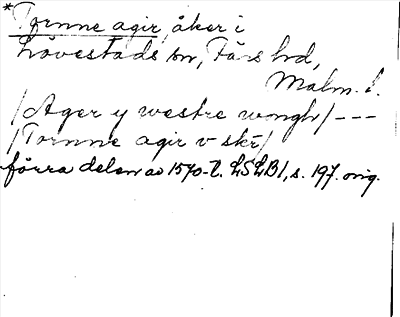 *Tornne agir, åker i
Lövestads sn, Färs hd,
Malm. l.
/Ager y westre wongh/ ---
/Tornne agir v skr/
förra delen av 1570-t. LSLB1, s. 197. orig.